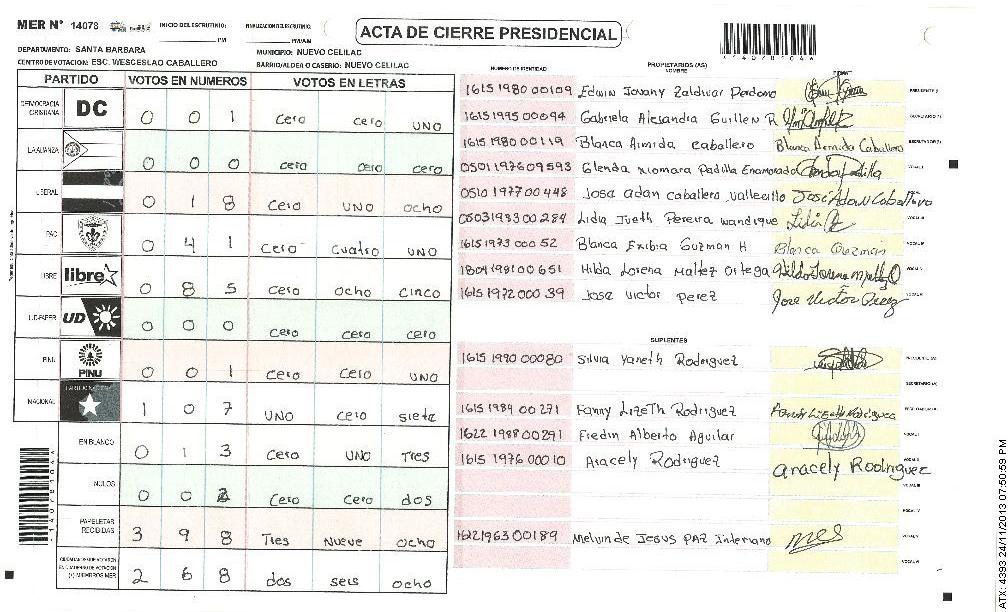 MER N° 14078
INICIO DEL ESCRUTINIO:
PM
FINALIZACION DEL ESCRUTINIO:
PM/AM
ACTA DE CIERRE PRESIDENCIAL
DEPARTAMENTO: SANTA BARBARA
MUNICIPIO: NUEVO CELILAC
CENTRO DE VOTACION: ESC. WESCESLAO CABALLERO
BARRIO/ALDEA O CASERIO: NUEVO CELILAC
PARTIDO VOTOS EN NUMEROS VOTOS EN LETRAS
DEMOCRACIA CRISTIANA DC 0 0 1 cero cero UNO
LA ALIANZA 0 0 0 cero cero cero
LIBERAL 0 1 8 cero UNO ocho
PAC 0 4 1 cero cuatro UNO
LIBRE libre 0 8 5 cero ocho cinco
UD-FAPER UD 0 0 0 cero cero cero
PINU PINU 0 0 1 cero cero UNO
NACIONAL 1 0 7 UNO cero siete
EN BLANCO 0 1 3 cero UNO Tres
NULOS 0 0 2 cero cero dos
PAPELETAS RECIBIDAS 3 9 8 Tres Nueve ocho
CIUDADANOS QUE VOTARON EN CUADERNO DE VOTACION (+) MIEMBROS MER 2 6 8 dos seis ocho
NUMERO DE IDENTIDAD
PROPIETARIOS (AS)
NOMBRE
FIRMA
1615 1980 00109 Edwin Jovany Zaldivar Perdomo
1615 1995 00094 Gabriela Alesandra Guillen R
1615 1980 00119 Blanca Almida caballero Blanca Almida Caballero
0501 1976 09593 Glenda Xiomara Padilla Enamorado Glenda Padilla
0510 1977 00448 Josa adan caballero vallecillo Jose Adan Caballero
0503 1983 00284 Lidia Jueth Pereira wandique
1615 1973 000 52 Blanca Exibia Guzman H Blanca Guzmán
1804 1981 00651 Hilda Lorena Maltez Ortega
1615 1972 000 39 Jose victor perez Jose Victor Perez
SUPLENTES
1615 1990 00080 Silvia Yaneth Rodriguez
1615 1989 00 271 Fanny Lizeth Rodriguez Fanny Lizeth Rodriguez
1622 1988 00291 Fredin Alberto Aguilar
1615 1976 00010 Aracely Rodriguez aracely Rodriguez
1622 1963 00189 Melvin de Jesus PAZ Interiano
ATX: 4393 24/11/2013 07:50:59 PM